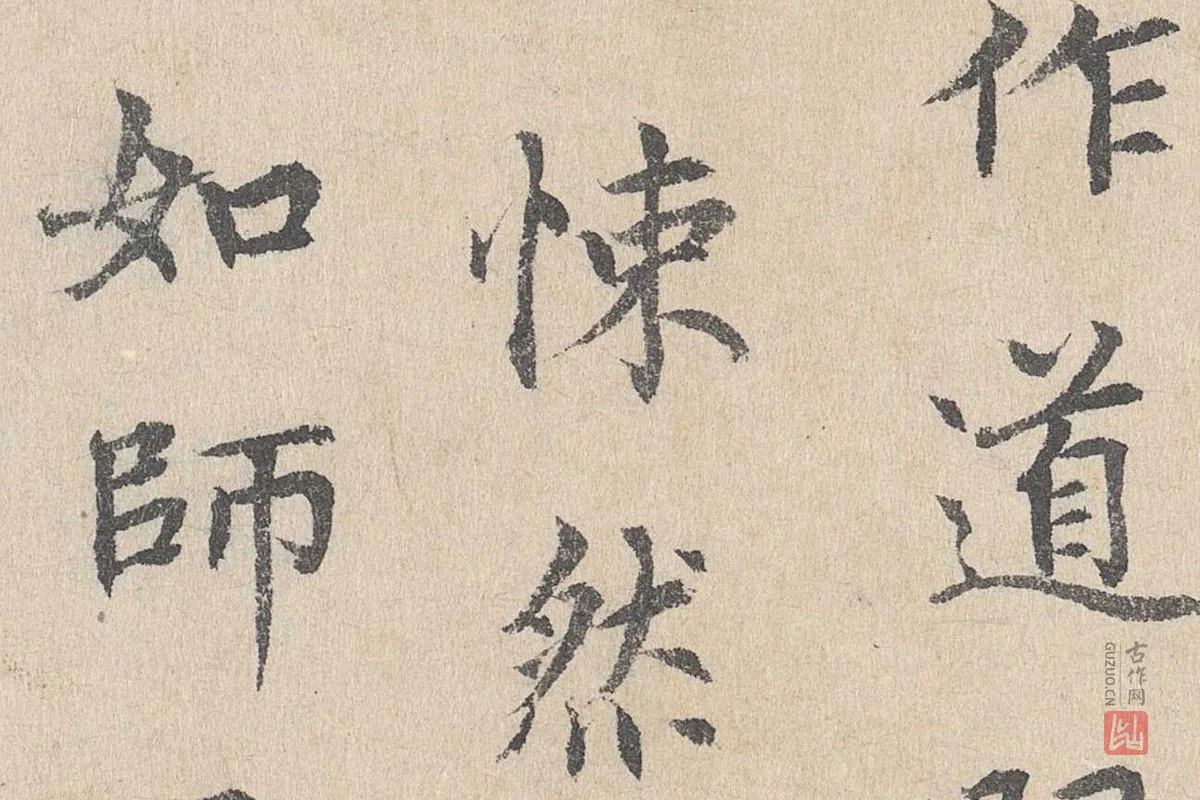 作道
悚然
如師
古作网
GUZUO.CN